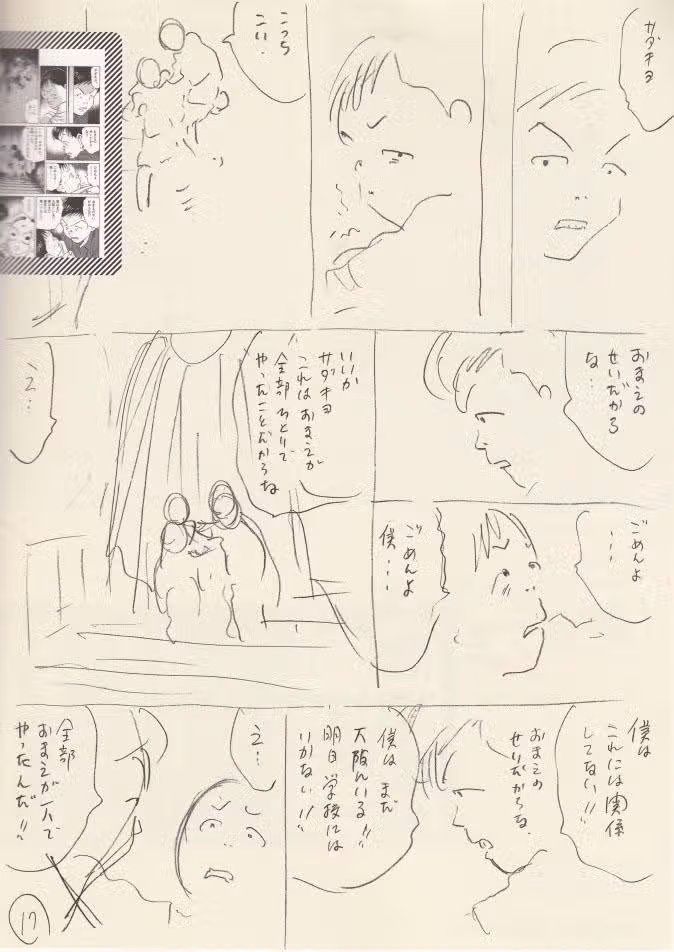 サダキヨ
こっち
こい．
おまえの
せいだから
な…
ごめんよ
…
ごめんよ
僕…
いいか
サダキヨ
これは おまえが
全部 ひとりで
やったことだからな
え…
僕は
これには関係
してない!!
おまえの
せいだからな．
僕は まだ
大阪にいる!!
明日 学校には
いかない!!
え…
全部
おまえが一人で
やったんだ!!
17